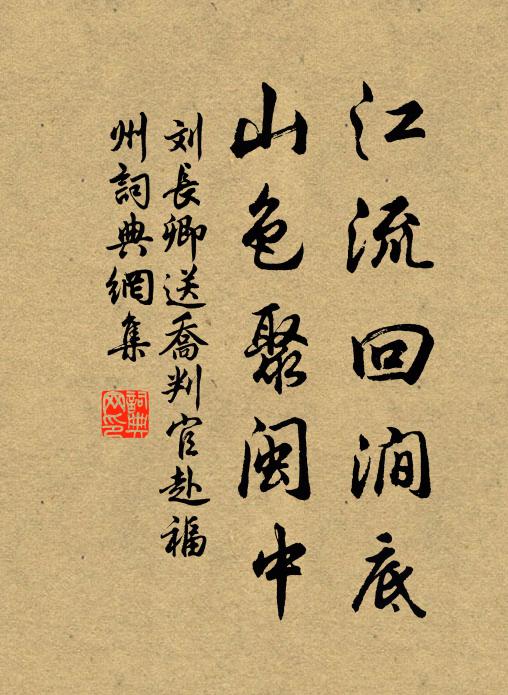 江流回涧底
山色聚闽中
刘長卿送喬判官赴福
州詞典網集
詞典
网印